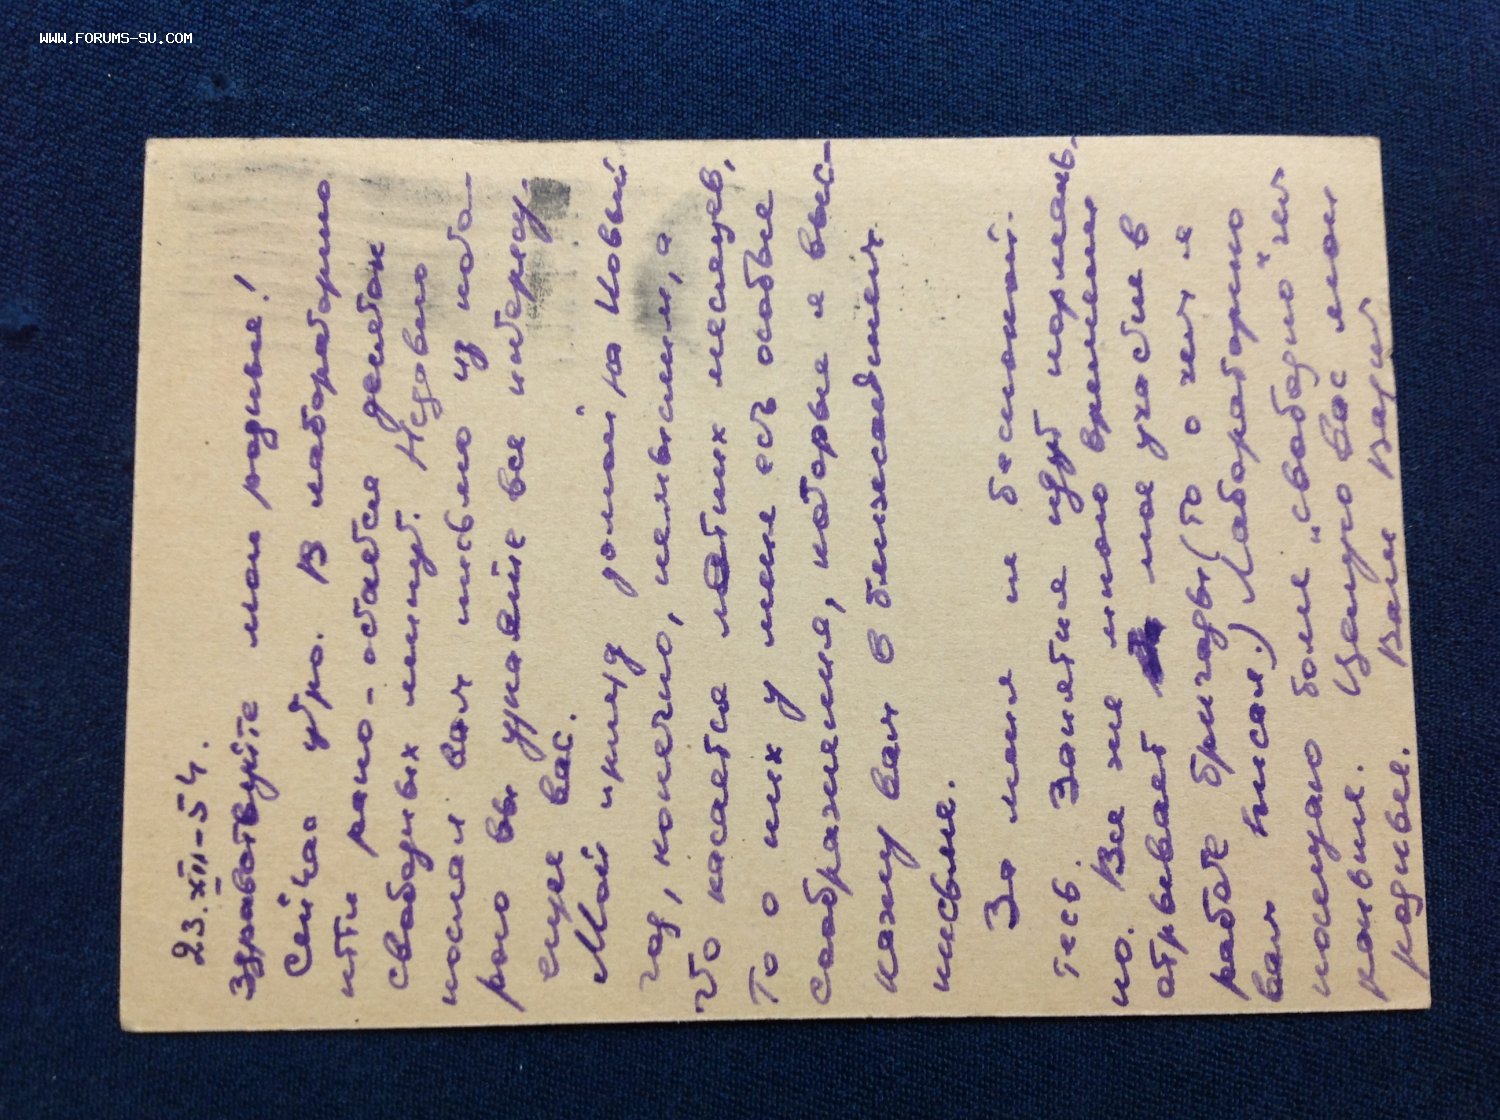 WWW.FORUMS-SU.COM
23.XII-54.
Здравствуйте мои родные!
Сейчас утро. В лабораторию
идти рано - остается десяток
свободных минут. Недавно
послал вам письмо из кото-
рого вы узнаете все интересу-
ющее вас.
Мой приезд домой на Новый
год, конечно, немыслим, а
что касается летних месяцев,
то о них у меня есть особые
соображения, которые я выс-
кажу вам в ближайшем
письме.
За меня не беспокой-
тесь. Занятия идут нормаль-
но. Все же много времени
отрывает мое участие в
работе бригады (то о чем я
вам писал.) Лабораторию
посещаю более "свободно" чем
раньше. Целую вас мои
родные. Ваш Вадим